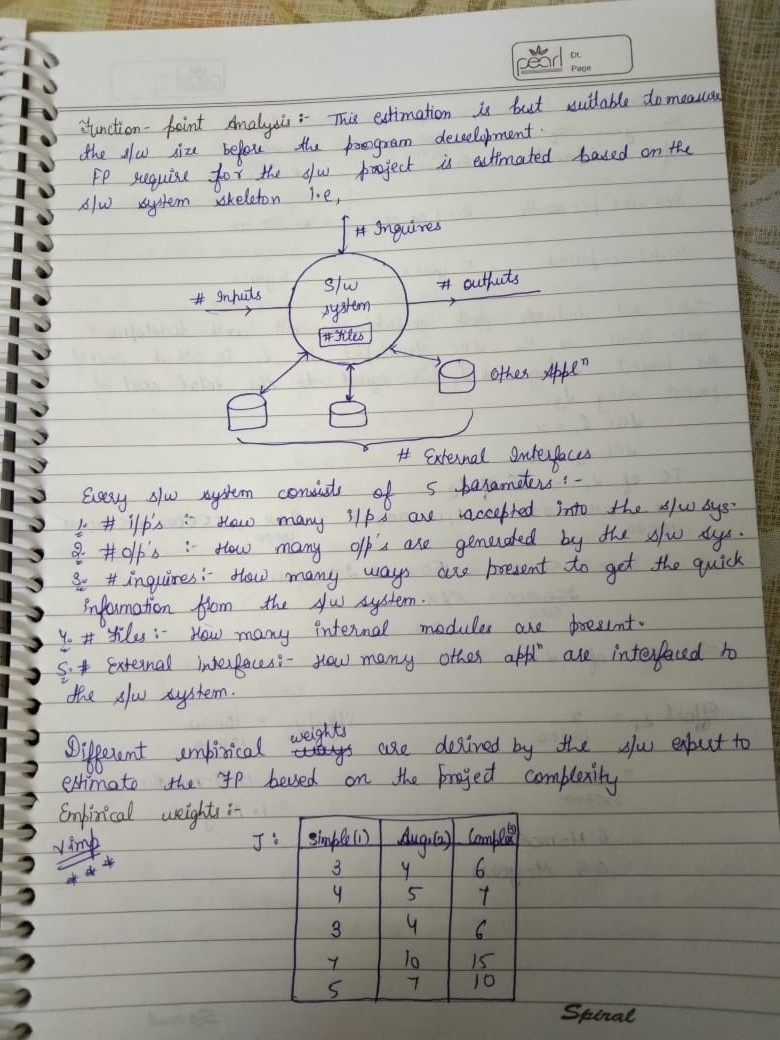 pearl
Dt.
Page
Function-point Analysis :- This estimation is best suitable to measure
the s/w size before the program development.
FP require for the s/w project is estimated based on the
s/w system skeleton i.e,
# Inquires
# Inputs
S/w
system
# Files
# outputs
Other Applⁿ
# External Interfaces
Every s/w system consists of 5 parameters :-
1. # i/p's :- How many i/p's are accepted into the s/w sys.
2. # o/p's :- How many o/p's are generated by the s/w sys.
3. # inquires :- How many ways are present to get the quick
information from the s/w system.
4. # Files :- How many internal modules are present.
5. # External interfaces :- How many other applⁿ are interfaced to
the s/w system.
weights
Different empirical ways are derived by the s/w expert to
estimate the FP besed on the project complexity
Empirical weights :-
v imp
* * *
J : Simple(1) Aug.(2) Complex(3)
3 4 6
4 5 7
3 4 6
7 10 15
5 7 10
Spiral